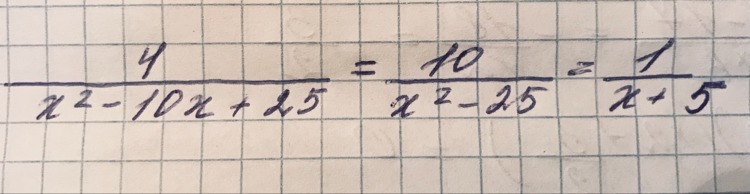 4/(x² - 10x + 25) = 10/(x² - 25) = 1/(x + 5)